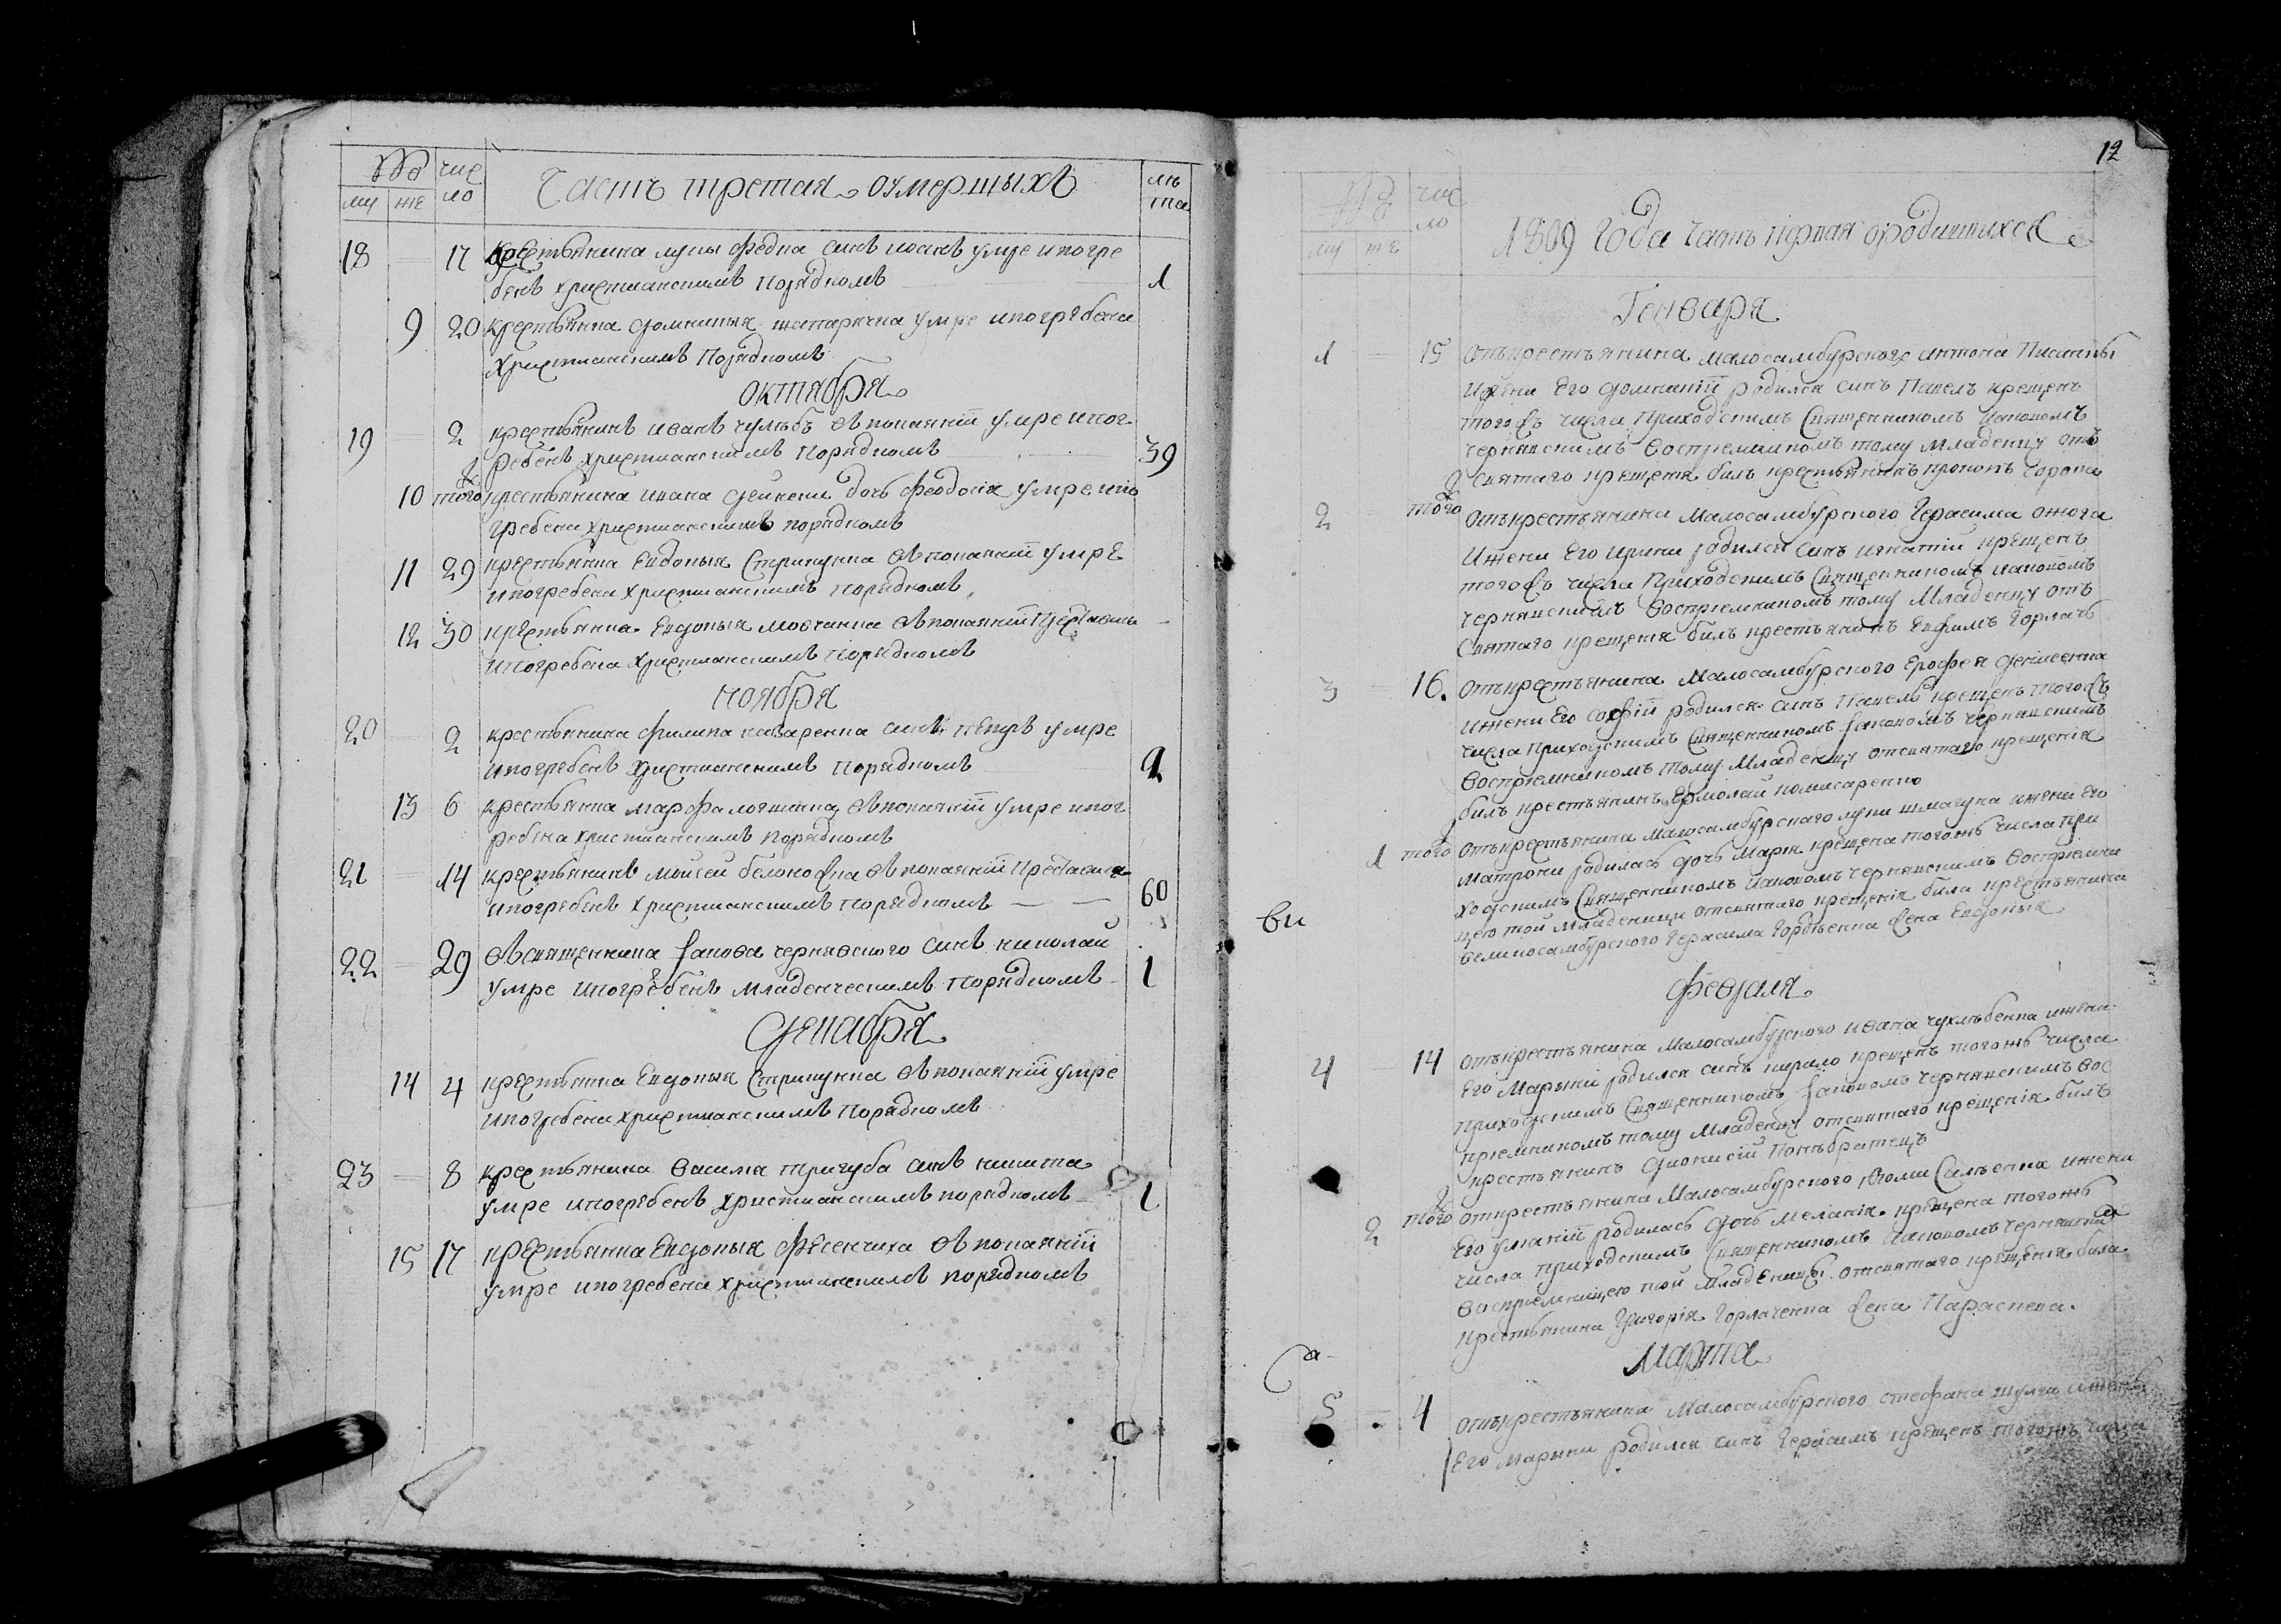 чис
ло
му
же
Часть третая о умершыхъ
лѣ
та
18 — 17 крестьянина лупы федка синъ иоанъ умре и погре
бенъ христианскимъ порядкомъ 1
9 20 крестьянка домникия умре и погребена
христианскимъ порядкомъ
октября
19 — 2 крестьянинъ иванъ въ покаяніи умре и пог
ребенъ христианскимъ порядкомъ 39
10 того крестьянина ивана дочь феодосія умре и по
гребена христианскимъ порядкомъ
11 29 крестьянка Евдокия Стрикунка въ покаяніи умре
и погребена христианскимъ порядкомъ
12 30 крестьянка Евдокия мовчанка въ покаяніи
и погребена христианскимъ порядкомъ
ноября
20 2 крестьянина филипа назаренка синъ петръ умре
и погребенъ христианскимъ порядкомъ
13 6 крестьянка марфа въ покаяніи умре и пог
ребена христианскимъ порядкомъ
21 — 14 крестьянинъ Моисей въ покаяніи преставися
и погребенъ христианскимъ порядкомъ — — 60
22 — 29 священника Іакова чернявского синъ николай
умре и погребенъ младенческимъ порядкомъ 1
декабря
14 4 крестьянка Евдокия Стрикунка въ покаяніи умре
и погребена христианскимъ порядкомъ
23 — 8 крестьянина василия тригуба синъ никита
умре и погребенъ христианскимъ порядкомъ 1
15 17 крестьянка Евдокия фесенчиха въ покаяніи
умре и погребена христианскимъ порядкомъ
12
чис
ло
му
же
1809 года часть первая о родившихся
Генваря
1 — 15 отъ крестьянина малосамбурского антона
и жени его домникіи родился синъ Павелъ крещенъ
того жъ числа приходскимъ священникомъ Иаковомъ
чернявскимъ восприемникомъ тому младенцу отъ
святаго крещения билъ крестьянинъ прокопъ
2 — того отъ крестьянина малосамбурского Герасима
и жени его ирини родился синъ игнатій крещенъ
того жъ числа приходскимъ священникомъ иаковомъ
чернявскимъ восприемникомъ тому младенцу отъ
святаго крещения билъ крестьянинъ Евфимъ Горлачъ
3 — 16. отъ крестьянина малосамбурского Ерофея
и жени его софіи родился синъ Павелъ крещенъ того жъ
числа приходскимъ священникомъ Іаковомъ чернявскимъ
восприемникомъ тому младенцу от святаго крещенія
билъ крестьянинъ Ермолай комисаренко
1 того отъ крестьянина малосамбурскаго луки шмагуна и жени его
Матрони родилась дочь Мария крещена того жъ числа при
ходскимъ священникомъ Иаковомъ чернявскимъ восприемни
цею той младеници от святаго крещения била крестьянина
великосамбурского Герасима жена Евдокия
ви
Февраля
4 14 отъ крестьянина малосамбурского ивана и жени
его Марыни родился синъ кирило крещенъ того жъ числа
приходскимъ священникомъ Іаковомъ чернявскимъ вос
приемникомъ тому младенцу от святаго крещения билъ
крестьянинъ Дионисий
2 того от крестьянина малосамбурского и жени
его родилась дочь меланія крещена того жъ
числа приходскимъ священникомъ Иаковомъ чернявским
восприемницею той младеницы от святаго крещения била
крестьянина Григория Горлаченка жена Параскева.
Марта
5 — 4 отъ крестьянина малосамбурского стефана шулги и жены
Его марыни родился синъ Герасимъ крещенъ того жъ числа